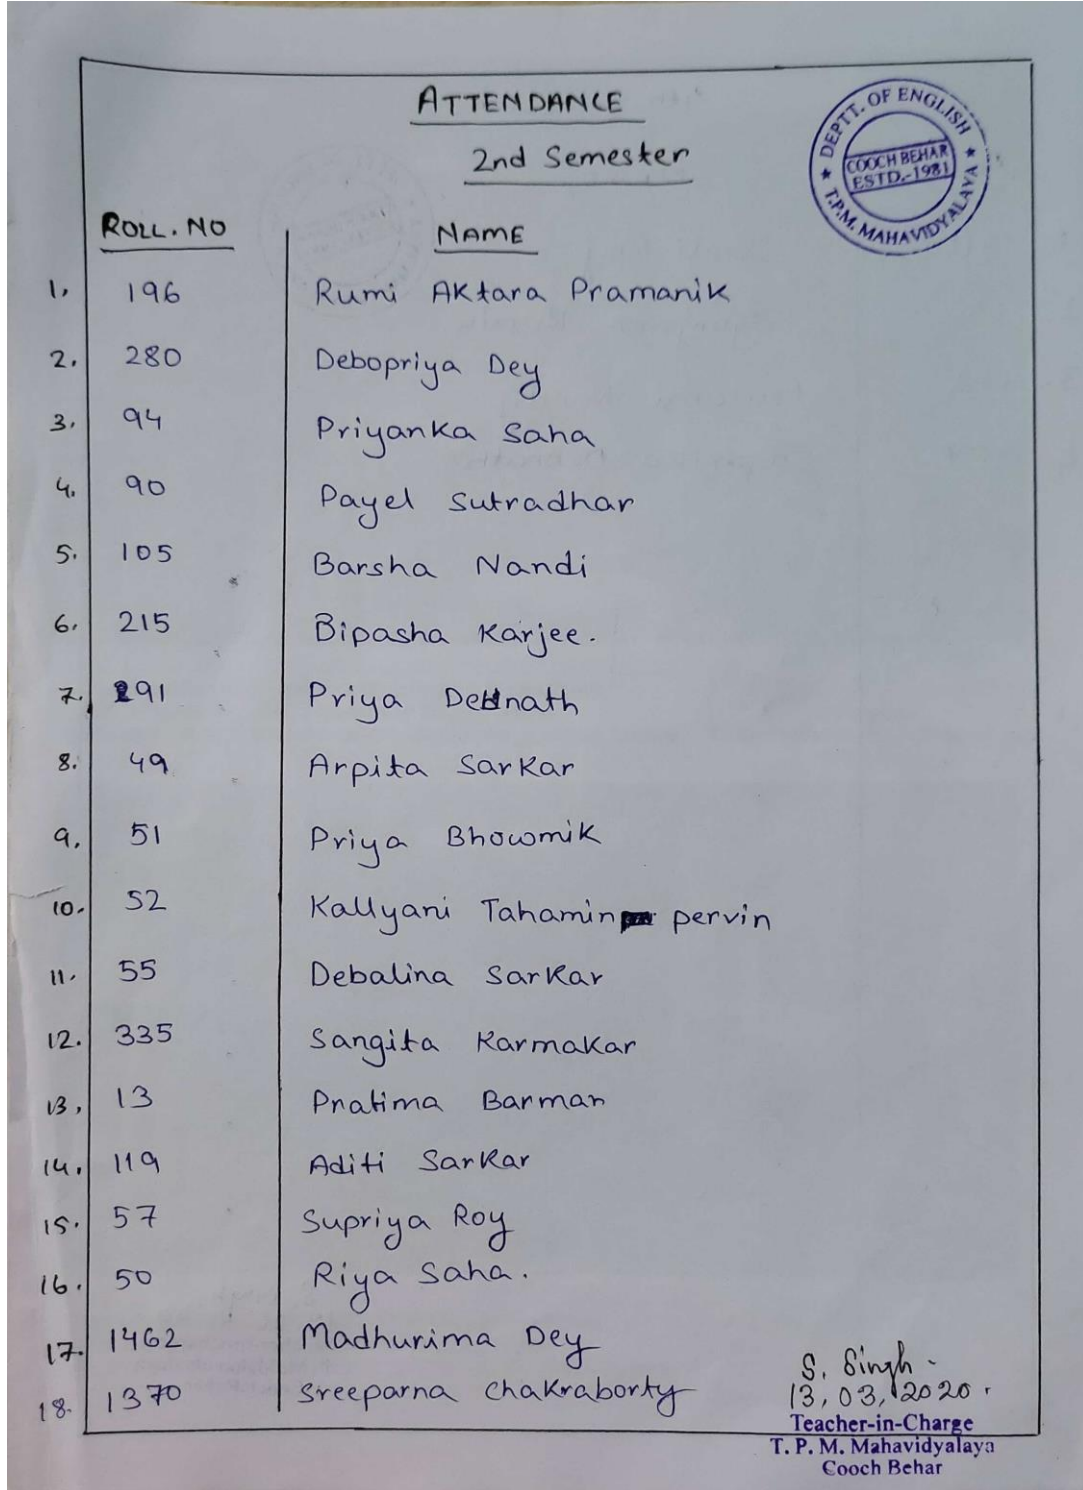 ATTENDANCE
2nd Semester
DEPTT. OF ENGLISH
COOCH BEHAR
ESTD.-1981
★ T.P.M. MAHAVIDYALAYA ★
ROLL. NO NAME
1. 196 Rumi Aktara Pramanik
2. 280 Debopriya Dey
3. 94 Priyanka Saha
4. 90 Payel Sutradhar
5. 105 Barsha Nandi
6. 215 Bipasha Karjee.
7. 291 Priya Debnath
8. 49 Arpita Sarkar
9. 51 Priya Bhowmik
10. 52 Kallyani Tahamin pervin
11. 55 Debalina Sarkar
12. 335 Sangita Karmakar
13. 13 Pratima Barman
14. 119 Aditi Sarkar
15. 57 Supriya Roy
16. 50 Riya Saha.
17. 1462 Madhurima Dey
18. 1370 Sreeparna Chakraborty
S. Singh
13.03.2020.
Teacher-in-Charge
T. P. M. Mahavidyalaya
Cooch Behar